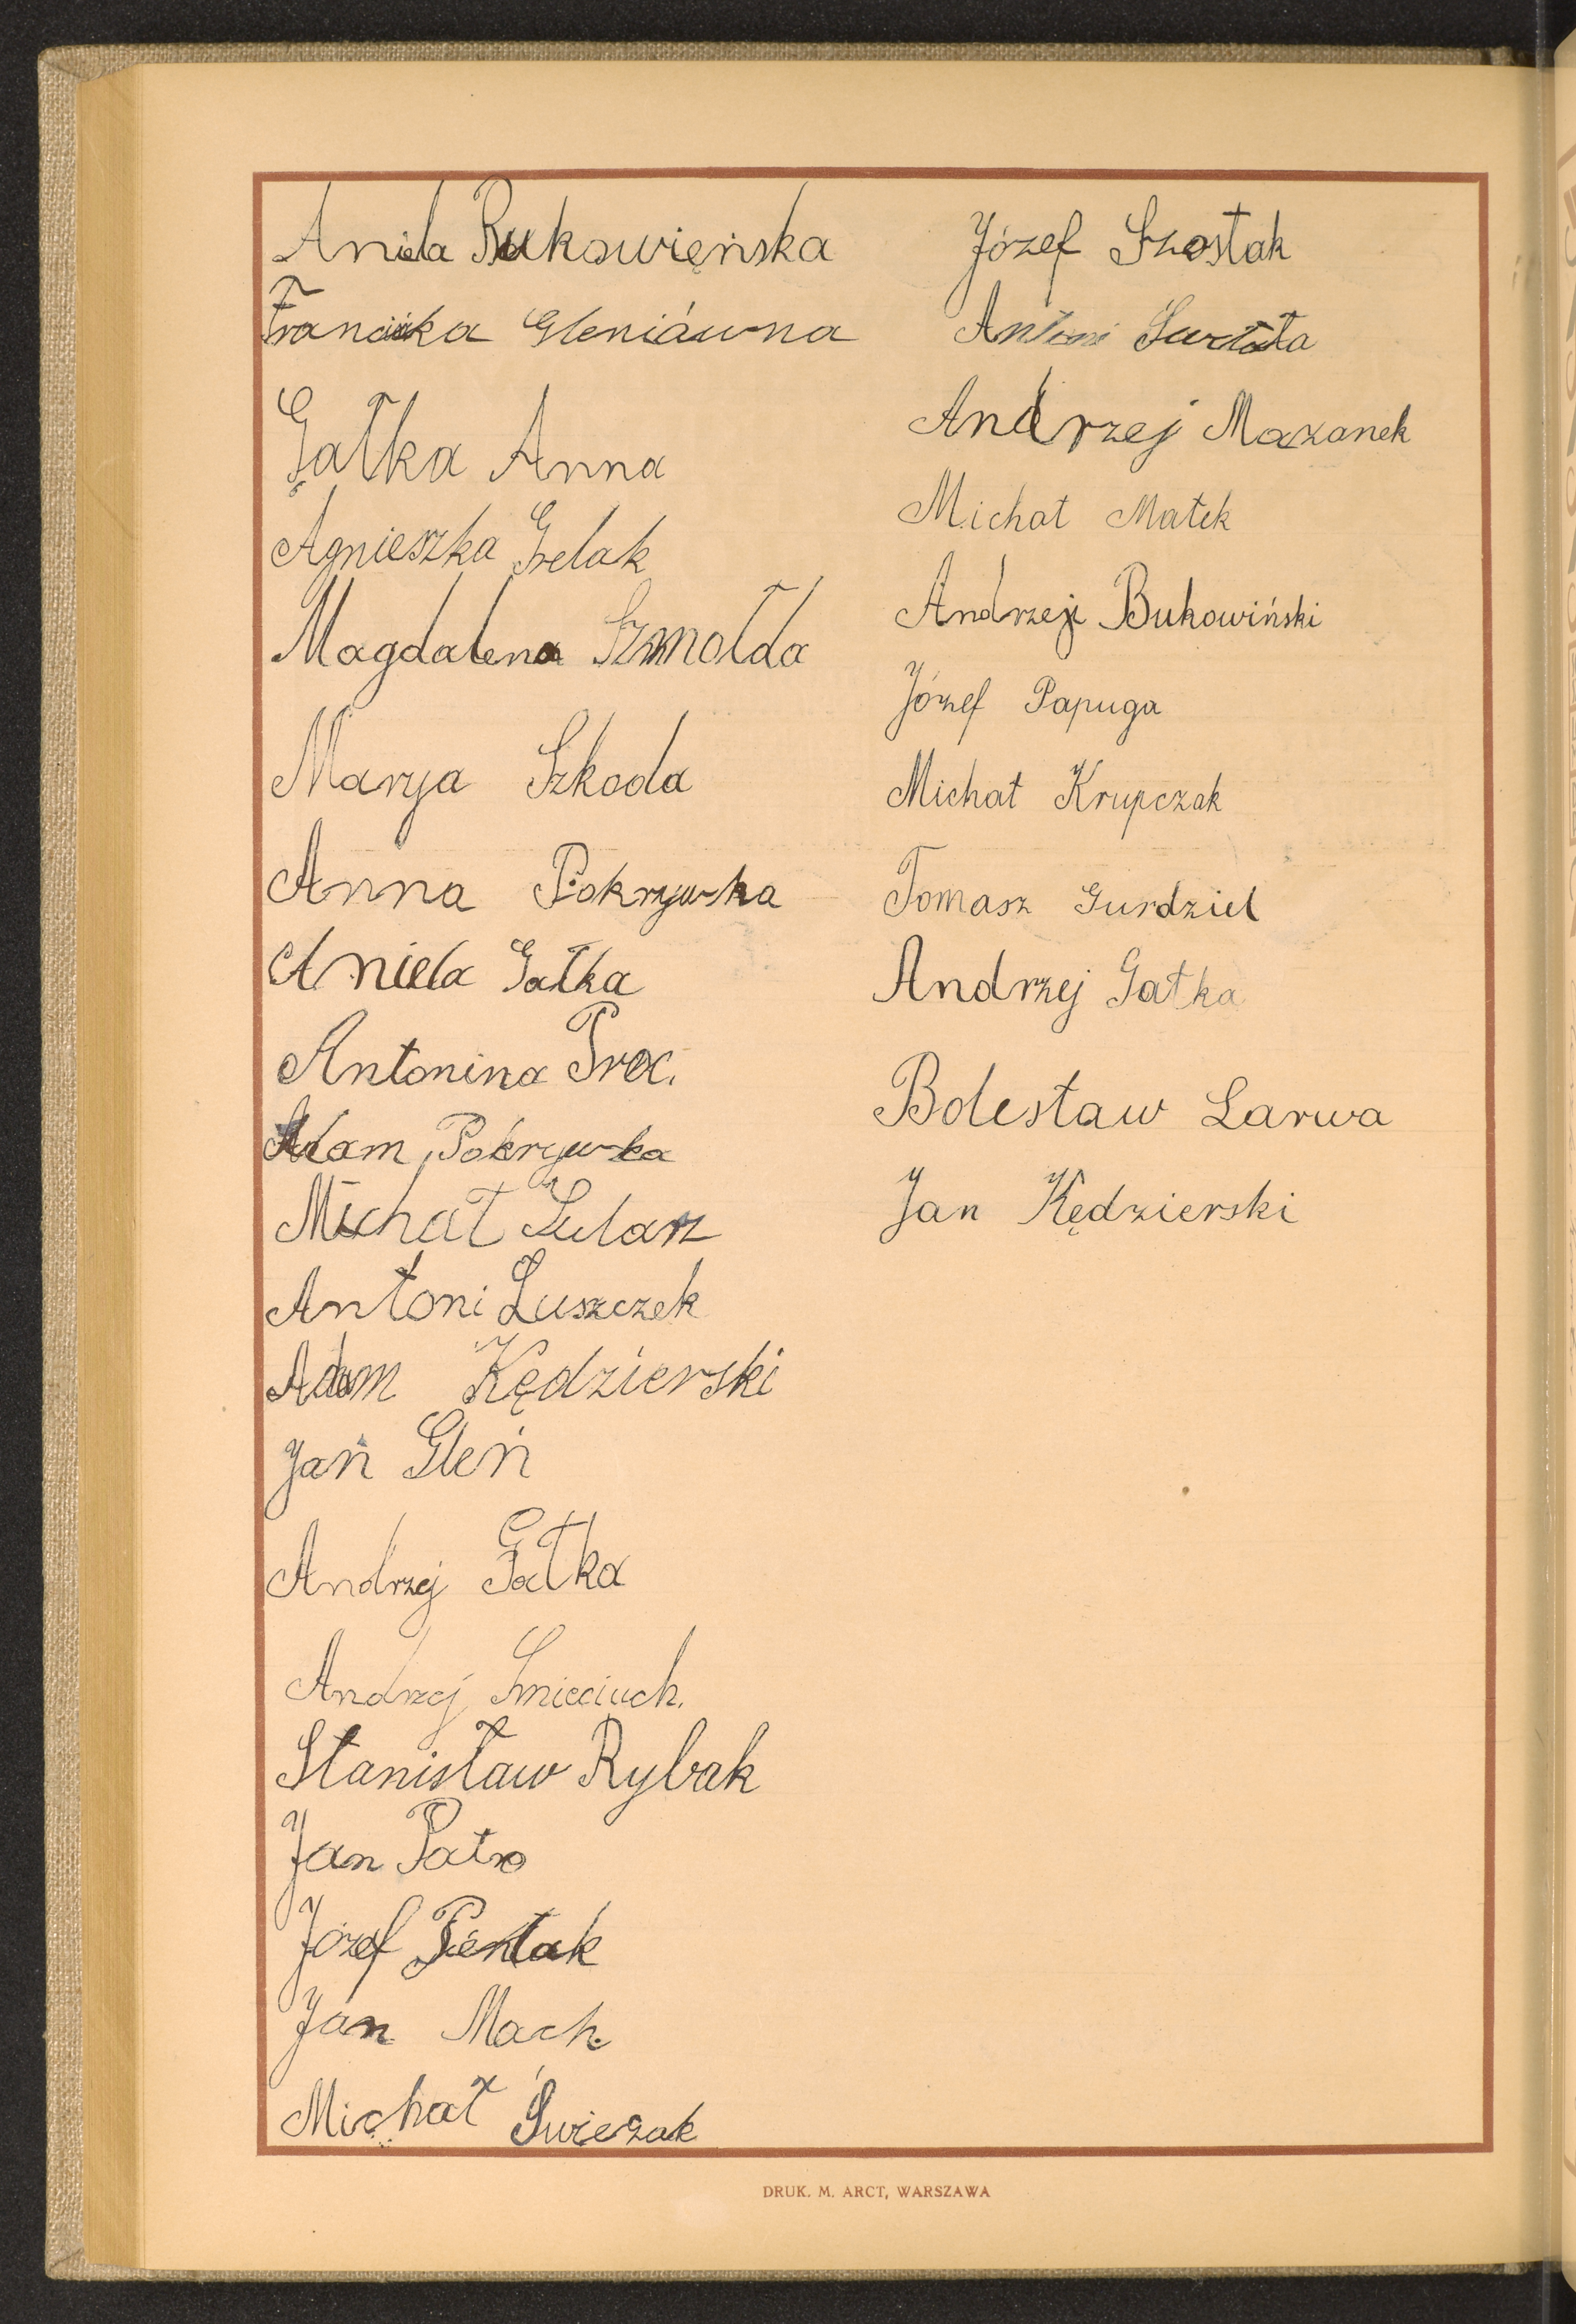 Aniela Bukowięńska
Franciska Gleniáwna
Gałka Anna
Agnieszka Grelak
Magdalena Szmołda
Marya Szkoda
Anna Pokrzywka
Aniela Gałka
Antonina Proc.
Adam Pokrzywka
Michał Sularz
Antoni Łuszczek
Adam Kędzierski
Jan Gleń
Andrzej Gałka
Andrzej Smieciuch.
Stanisław Rybak
Jan Patro
Józef Pientak
Jan Mach
Michał Świeżak
Józef Szostak
Antoni
Andrzej Mazanek
Michał Małek
Andrzej Bukowiński
Józef Papuga
Michał Krupczak
Tomasz Gurdziel
Andrzej Gałka
Bolesław Larwa
Jan Kędzierski
DRUK. M. ARCT, WARSZAWA